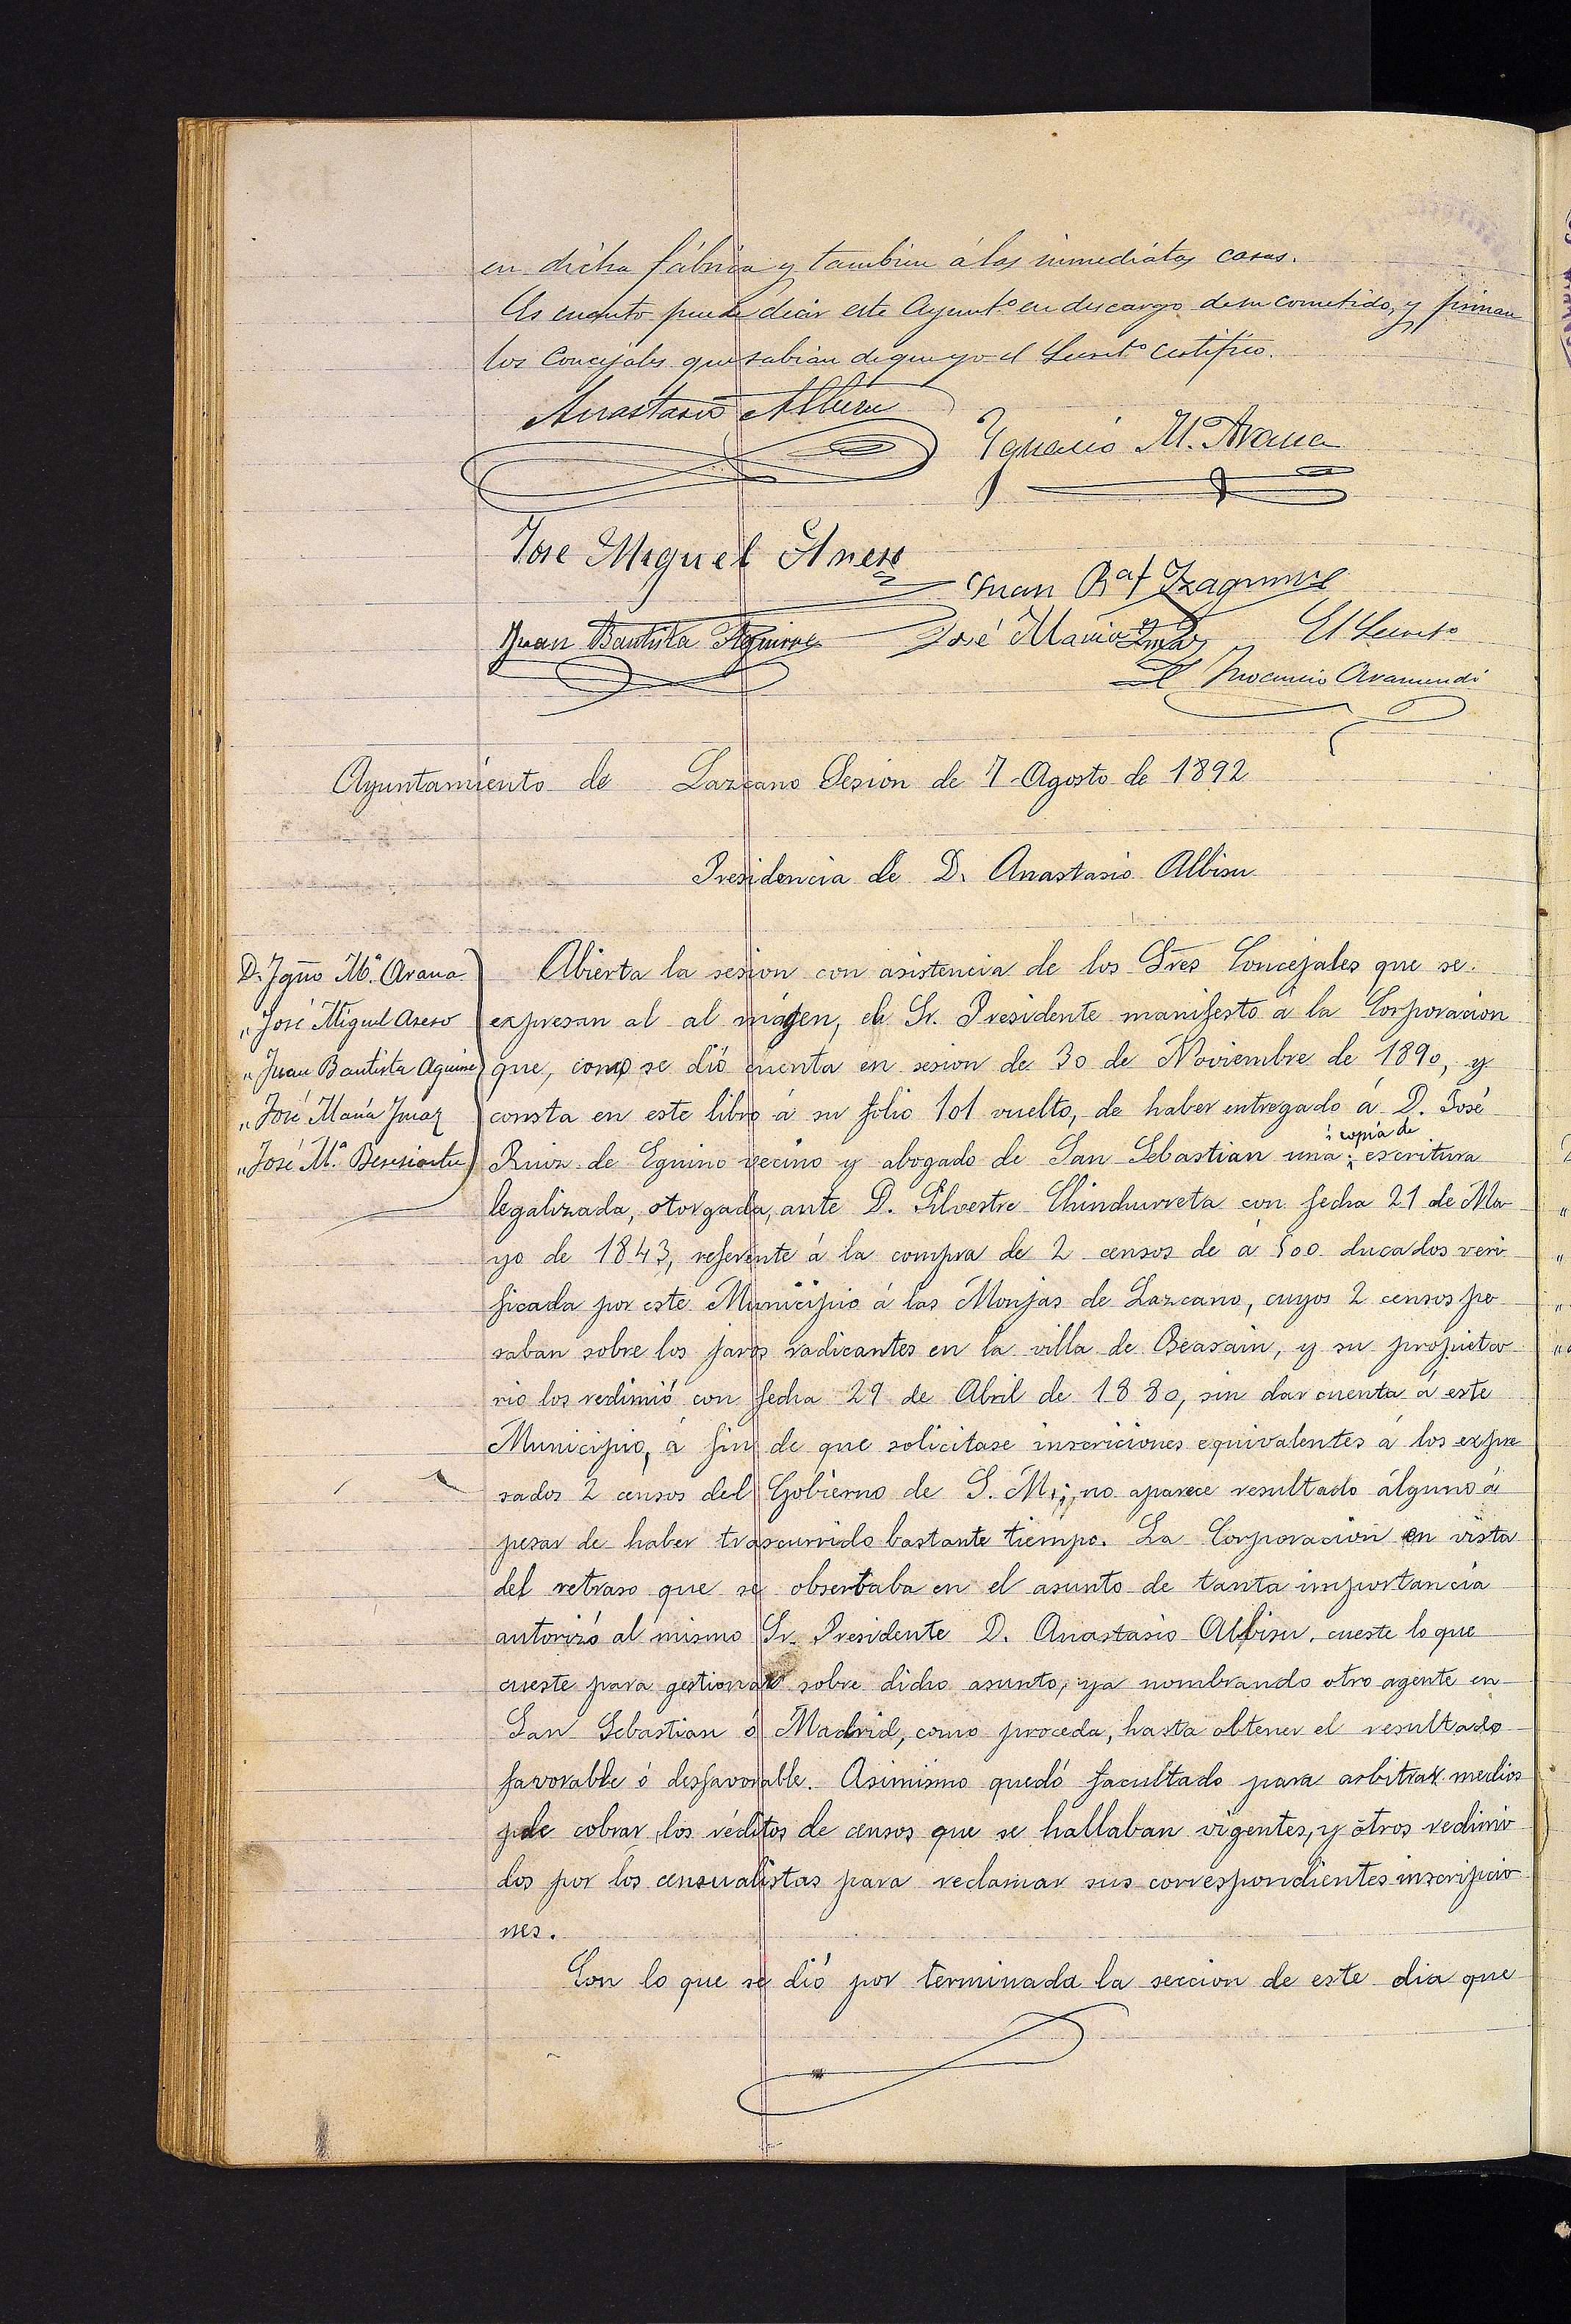 en dicha fábrica y tambien á las inmediatas casas.
Es cuanto puede decir este Ayunt.º en descargo de su cometido, y firman
los Concejales que sabian de que yo el Secret.º certifico.
Anastasio Albisu
Ygnacio M. Arana
Jose Miguel Aseso
Juan Bat Yzaguirre
Juan Bautista Aguirre
José Maria Ymaz
El Secret.º
Ynocencio Aramendi
Ayuntamiento de Lazcano Sesion de 7 Agosto de 1892
Presidencia de D. Anastasio Albisu
D. Ygño M.ª Arana
„ José Miguel Aseso
„ Juan Bautista Aguirre
„ José María Ymaz
„ José M.ª
Abierta la sesion con asistencia de los Sres Concejales que se
expresan al al márgen, el Sr. Presidente manifestó á la Corporacion
que, como se dió cuenta en sesion de 30 de Noviembre de 1890, y
consta en este libro á su folio 101 vuelto, de haber entregado á D. José
Ruiz de Eguino vecino y abogado de San Sebastian una copia de escritura
legalizada, otorgada, ante D. Silvestre Chinchurreta con fecha 21 de Ma-
yo de 1843, referente á la compra de 2 censos de á 500 ducados veri-
ficada por este Municipio á las Monjas de Lazcano, cuyos 2 censos pe-
saban sobre los jaros radicantes en la villa de Beasain, y su propieta-
rio los redimió con fecha 29 de Abril de 1880, sin dar cuenta á este
Municipio, á fin de que solicitase inscriciones equivalentes á los expre-
sados 2 censos del Gobierno de S. M.; no aparece resultado alguno á
pesar de haber trascurrido bastante tiempo. La Corporacion en vista
del retraso que se obserbaba en el asunto de tanta importancia
autorizó al mismo Sr. Presidente D. Anastasio Albisu, cueste lo que
cueste para gestionar sobre dicho asunto, ya nombrando otro agente en
San Sebastian ó Madrid, como proceda, hasta obtener el resultado
favorable ó desfavorable. Asimismo quedó facultado para arbitrar medios
de cobrar los réditos de censos que se hallaban vigentes, y otros redimi-
dos por los censualistas para reclamar sus correspondientes inscripcio-
nes.
Con lo que se dió por terminada la seccion de este dia que